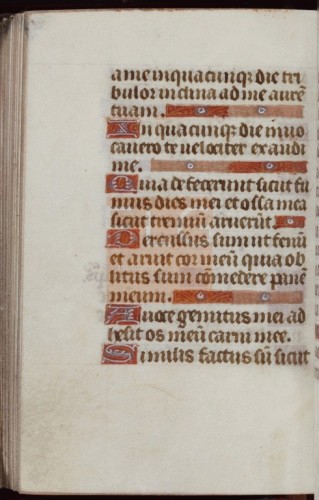 a me in quacunq; die tri
bulor inclina ad me aurē
tuam.
In quacunq; die inuo
cauero te velociter exaudi
me.
Quia defecerunt sicut fu
mus dies mei et ossa mea
sicut cremiū aruerūt.
Percussus sum ut fenū
et aruit cor meū quia ob
litus sum cōmedere panē
meum.
A uoce gemitus mei ad
hesit os meū carni mee.
Similis factus sū sicut